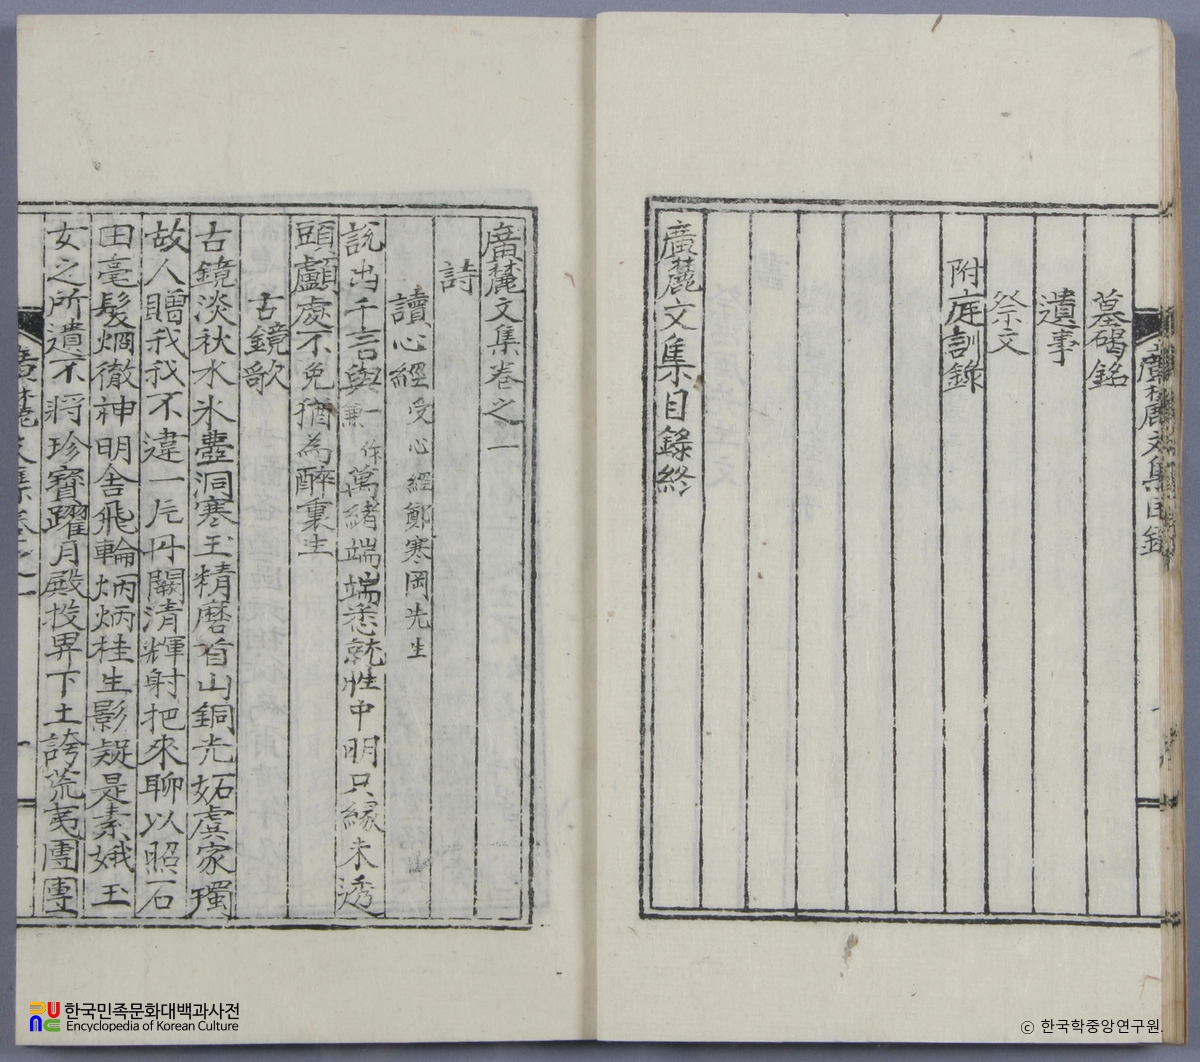 廣麓文集目錄
墓碣銘
遺事
祭文
附庭訓錄
廣麓文集目錄終
廣麓文集卷之一
詩
讀心經 受心經鄭寒岡先生
說出千言與 一作兼 萬緒端端悉就性中明只緣未透
頭顱處不免猶為醉裏生
古鏡歌
古鏡淡秋水氷壺洞寒玉精磨首山銅光妬虞家璿
故人贈我我不違一片丹闕清輝射把來聊以照石
田毫髮烱徹神明舍飛輪炳炳桂生影疑是素娥玉
女之所遺不將珍寶躍月殿投畀下土誇荒夷團團
廣麓文集卷之一
한국민족문화대백과사전
Encyclopedia of Korean Culture
ⓒ 한국학중앙연구원.